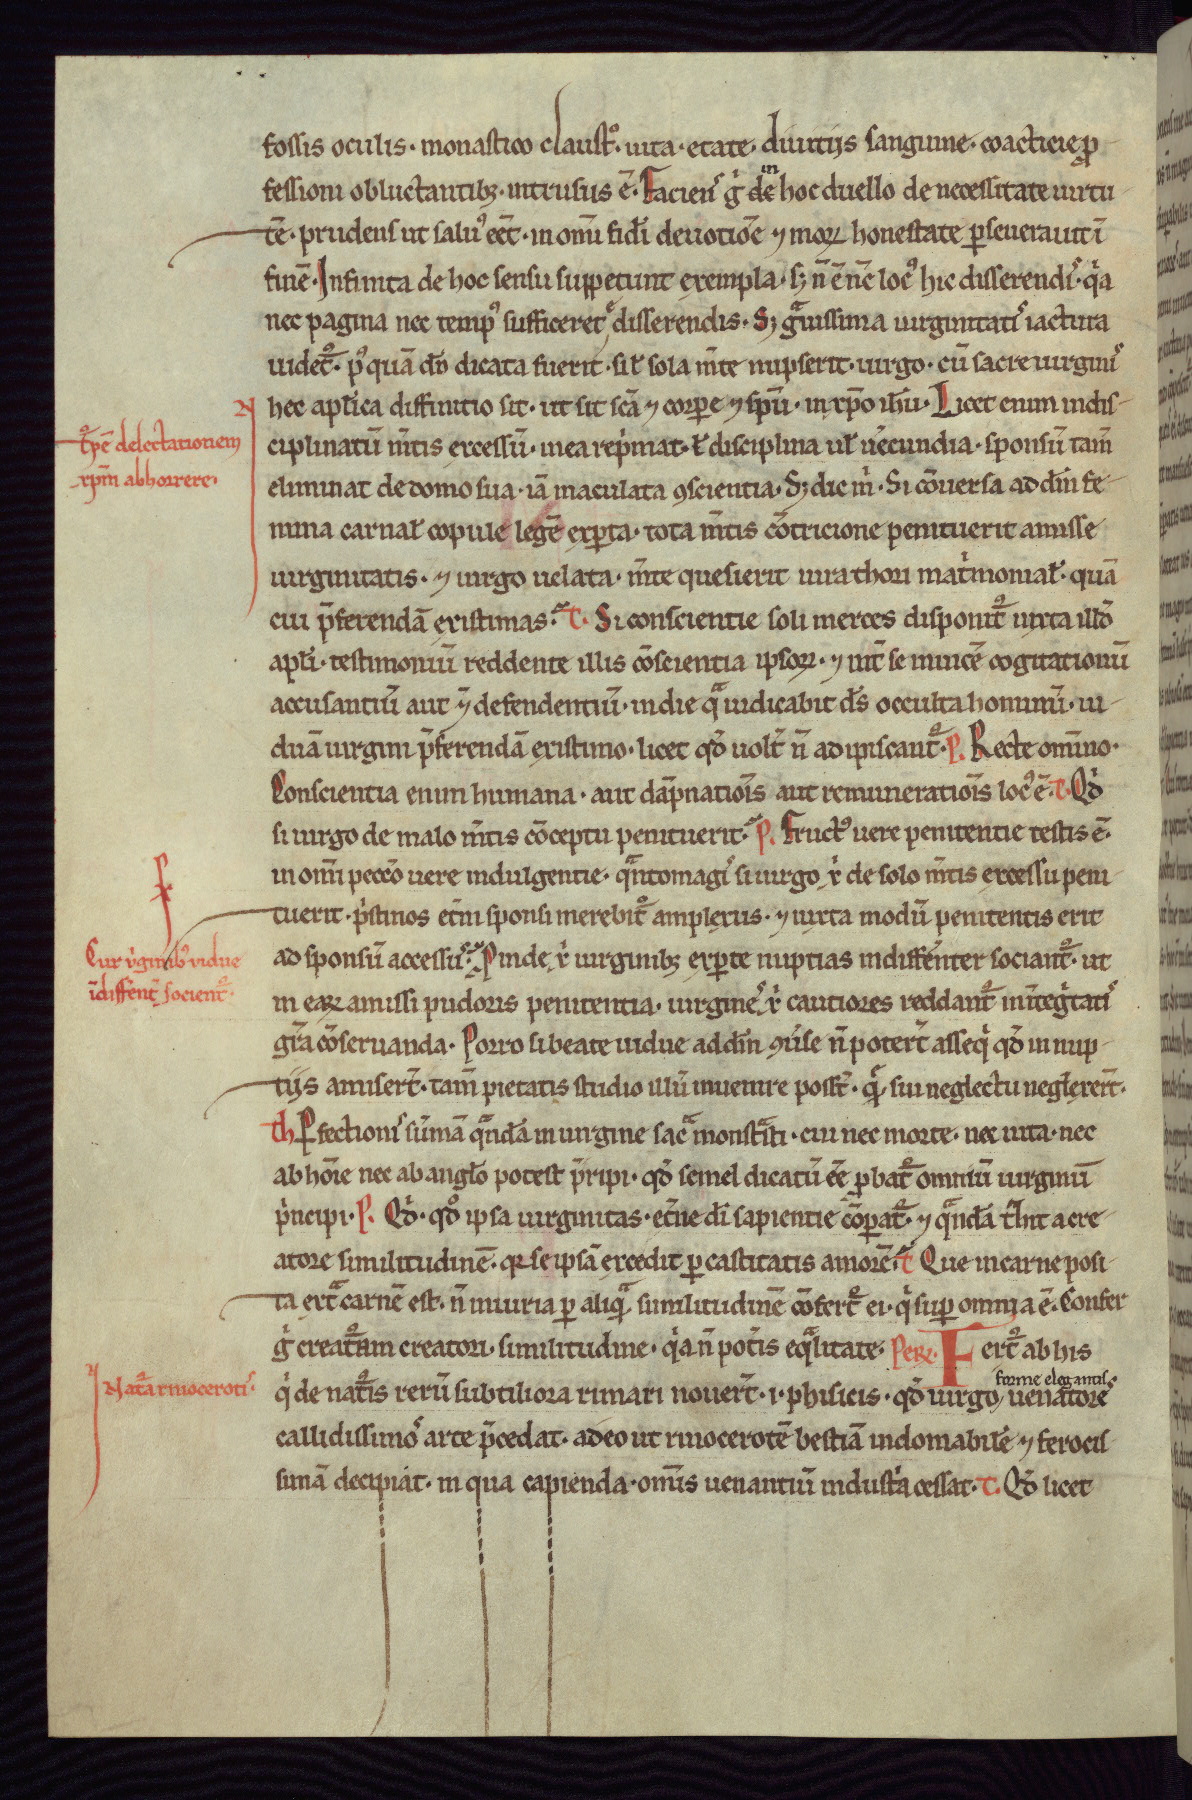 fossis oculis· monastico claustꝰ· uita· etate· diuitijs sanguine· coacticie ꝓ
fessioni obluctantibꝫ· intrusus ē· Faciens g̊ de in hoc duello de necessitate uirtu
tē· prudens ut saluꝰ eēt· in om̄i fidi deuotiōe ⁊ moꝝ honestate ꝑseuerauit ī
finē· Infinita de hoc sensu suppetunt exempla· sꝫ n̄ ē nc̄ locꝰ hic disserendi· qͥa
nec pagina nec tempꝰ sufficeret disserendis· Sꝫ gͣuissima uirginitatis iactura
uidet᷑· pꝰquā dn̄o dicata fuerit· sil̄ sola m̄te nupserit· uirgo· cū sacre uirginis
hec apl̄ica diffinitio sit· ut sit sc̄a ⁊ corꝑe ⁊ sp̄u· in xp̄o ih̄u· Licet enim indis
ciplinatū m̄tis excessū· inea rep̍mat· ł disciplina ul̄ uecundia· sponsū tam̄
eliminat de domo sua· iā maculata ꝯscientia· Sꝫ dic m̍· Si cōuersa ad dn̄m fe
mina carnal̄ copule legē exꝑta· tota m̄tis cōtricione penituerit amisse
uirginitatis· ⁊ uirgo uelata· m̄te quesierit iura thori mat̍monial̄· quā
cui p̄ferendā existimas· T· Si conscientie soli merces disponit᷑ iuxta illd̄
apl̄i· testimoniū reddente illis cōscientia ipsoꝝ· ⁊ int̄ se inuicē cogitationū
accusantiū aut ⁊ defendentiū· in die qͣ iudicabit ds̄ occulta hominū· ui
duā uirgini p̄ferendā existimo· licet qd̄ uolt n̄ adipiscant᷑· P· Recte om̄ino·
Conscientia enim humana· aut dāpnatiōis aut remuneratiōis locꝰ ē· T· Qd̍
si uirgo de malo m̄tis cōceptu penituerit· P· Fructꝰ uere penitentie testis ē·
in om̄i pecc̄o uere indulgentie· qͣntomagis si uirgo x̍ de solo m̄tis excessu peni
tuerit· p̍stinos etn̄i sponsi merebit᷑ amplexus· ⁊ iuxta modū penitentis erit
ad sponsū accessus· Pinde x̍ uirginibꝫ exꝑte nuptias indiffēnter sociant᷑· ut
in eaꝝ amissi pudoris penitentia· uirgines x̍ cautiores reddant᷑ in integ̍tatis
gr̄a cōseruanda· Porro si beate uidue ad dn̄m ꝯu̍se n̄ poter̄t asseq̍ qd̄ in nup
tijs amiser̄t· tam̄ pietatis studio illū inuenire posst̄· qͣ sui neglectu neglexer̄t·
Th· Pfectionis sum̄ā qͣndā in uirgine sacͣ monstͣsti· cui nec morte· nec uita· nec
ab hōie nec ab angl̄o potest p̄ripi· qd̄ semel dicatū eē ꝓbat᷑ omniū uirginū
p̍ncipi· P· Qd̍· qd̊ ipsa uirginitas· etn̄e di̅ sapientie cōparat᷑· ⁊ qͣndā t̄hit a cre
atore similitudinē· qꝛ se ipsā excedit ꝑ castitatis amorē· T Que in carne posi
ta extͣ carnē est· n̄ iniuria ꝑ aliqͣ similitudinē cōfert᷑ ei· q̍ suꝑ omnia ē· Confer
g̊ creat᷑am creatori· similitudine· qͥa n̄ pot̍is eqͣlitate· Pere· Fert᷑ ab his
forme elegantis
q̍ de nat᷑is rerū subtiliora rimari nouer̄t· i· phisicis· qd̄ uirgo uenatores
callidissimos arte p̄cedat· adeo ut rinocerotē bestiā indomabilē ⁊ ferocis
simā decipiat· in qua capienda· omīs uenantiū industͥa cessat· T· Qd̄ licet
N
t᷑pē delectationem
xpm̄ abhorrere·
Cur u̍ginibꝰ uidue
īdiffent̄ socient᷑·
Nat᷑a rinocerotis·